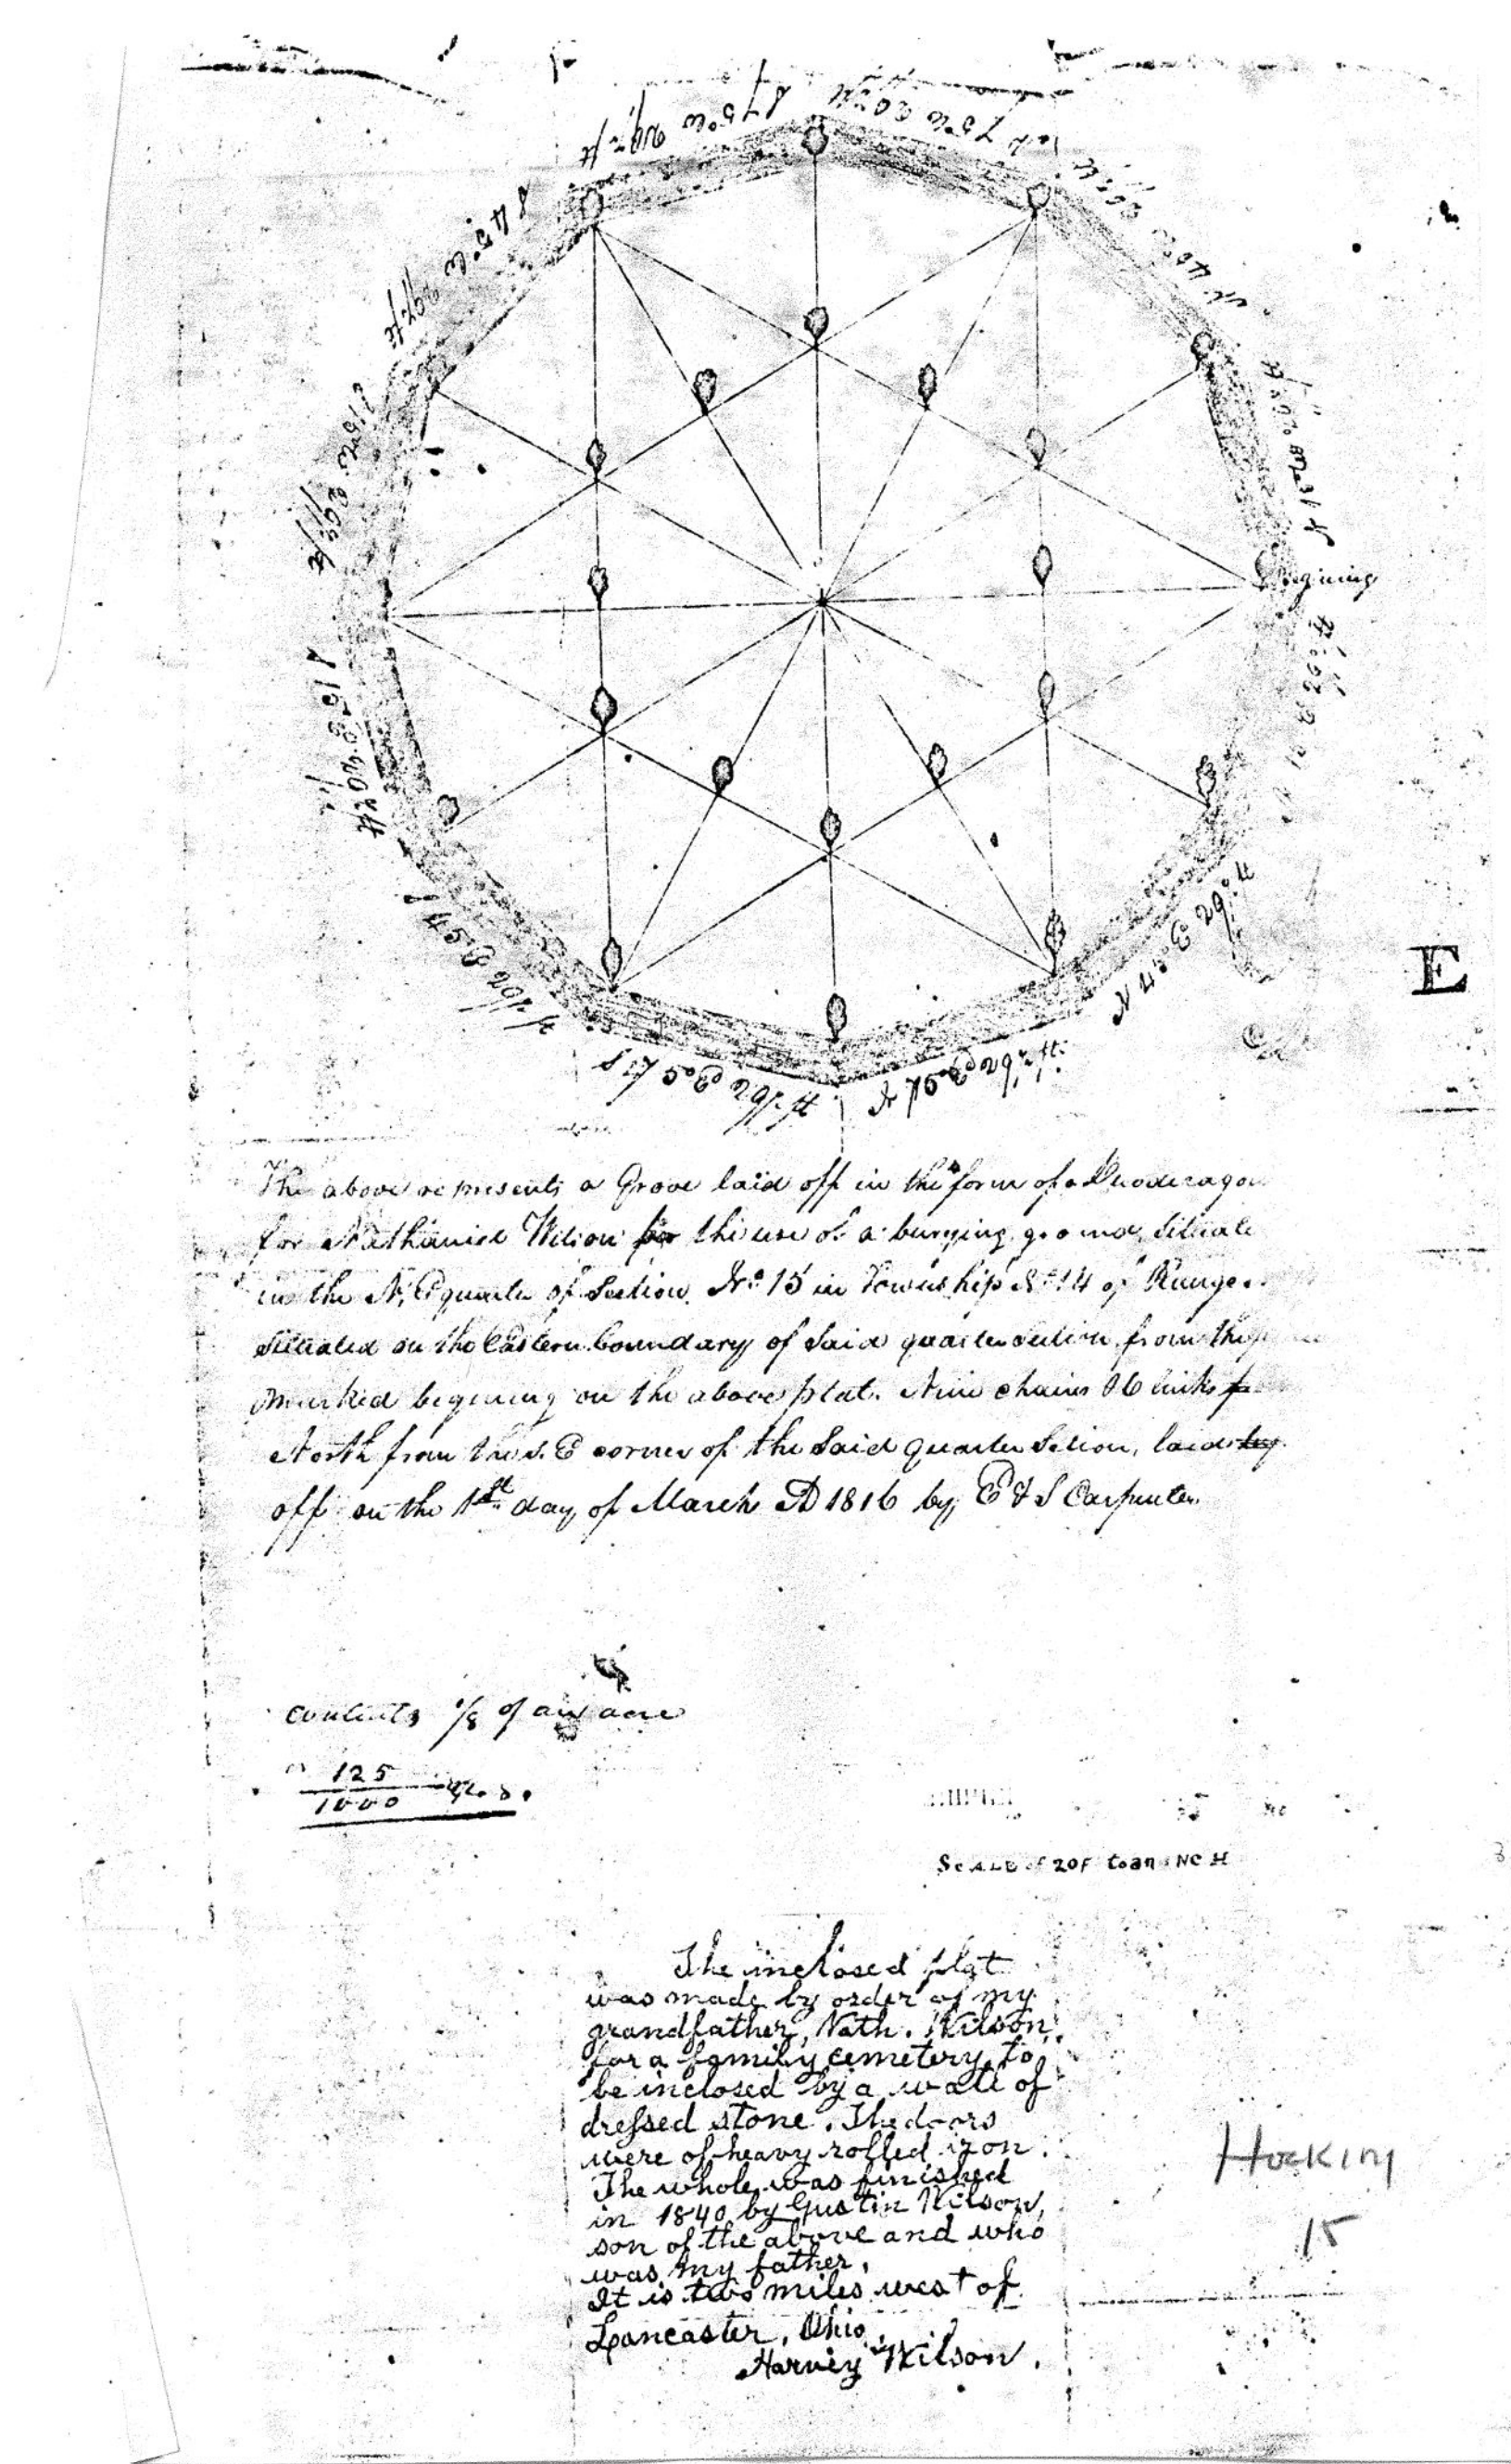 S 75° W 29 ft
N 75° W 29 ft
S 45° W 29 ft
N 45° W
S 15° W 29 ft
N 15° W
Begining
S 15° E 29 ft
S 45° E 29 ft
N 45° E 29 ft
S 75° E 29 ft
N 75° E 29 ft
E
The above represents a Grove laid off in the form of a Duodecagon
for Nathaniel Wilson for the use of a burying ground, Situate
in the N, E quarter of Section No 15 in Township No 14 of Range
Situated on the Eastern boundary of Said quarter section from the
marked begining on the above plat. Nine chains 86 links
North from the S. E corner of the Said quarter Section, laid
off on the 1st day of March AD 1816 by E & S Carpenter
Contents 1/8 of an acre
125
1000
SCALE of 20F to an INCH
The inclosed plat
was made by order of my
grandfather, Nath. Wilson,
for a family cemetery, to
be inclosed by a wall of
dressed stone. The doors
were of heavy rolled iron.
The whole was finished
in 1840 by Gustin Wilson,
son of the above and who
was my father.
It is two miles west of
Lancaster, Ohio.
Harvey Wilson.
Hocking
15